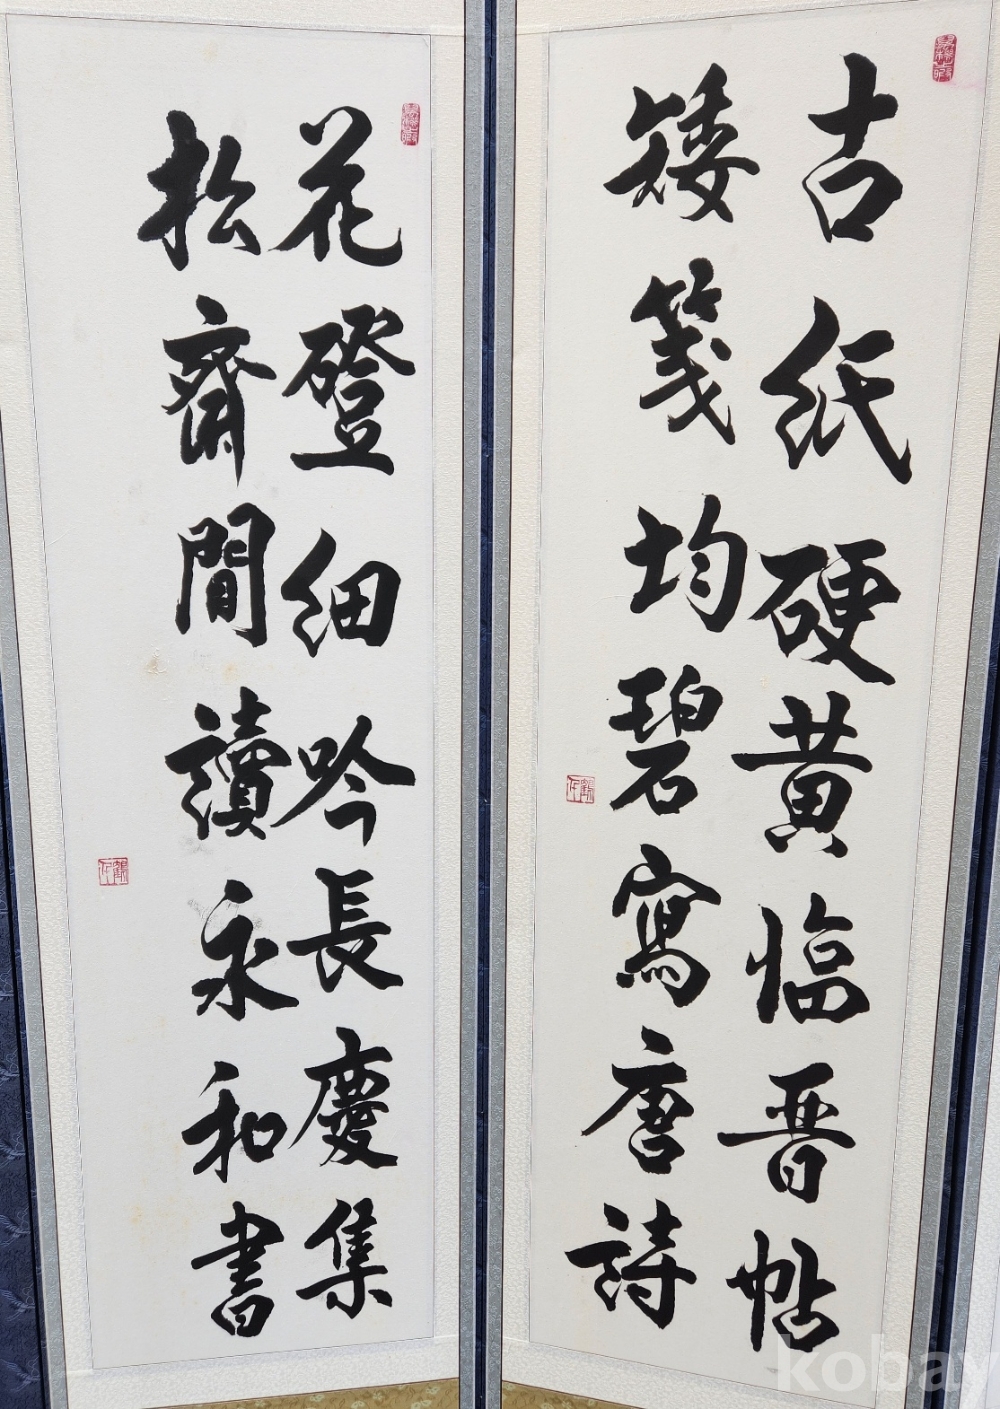 古紙硬黃臨晉帖
矮箋均碧寫唐詩
花磴細吟長慶集
松齋閒讀永和書
kobay